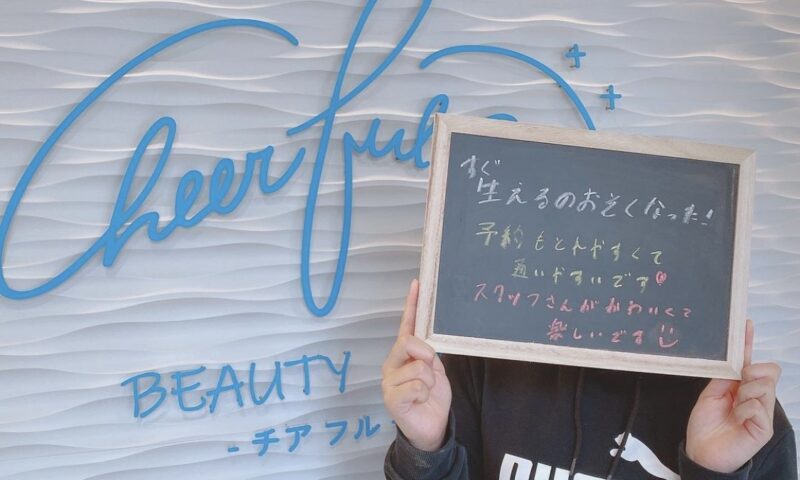 Cheerful
BEAUTY
-チアフル
すぐ
生えるのおそくなった!
予約もとりやすくて
通いやすいです
スタッフさんがかわいくて
楽しいです